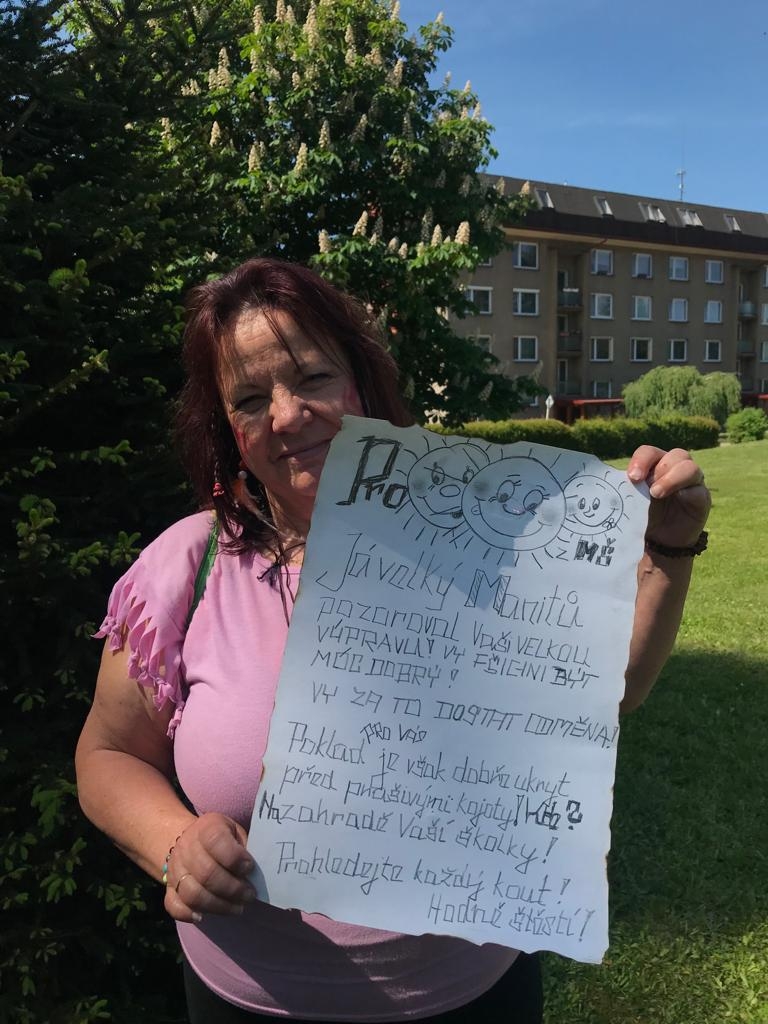 Pro
z MŠ
Já velký Manitů
pozoroval Vaši velkou
výpravu! Vy fšichni být
móc dobrý!
Vy za to dostat odměna!
pro Vás
Poklad je však dobře ukryt
před prašivými kojoty! Kde?
Na zahradě Vaší školky!
Prohledejte každý kout!
Hodně štěstí!